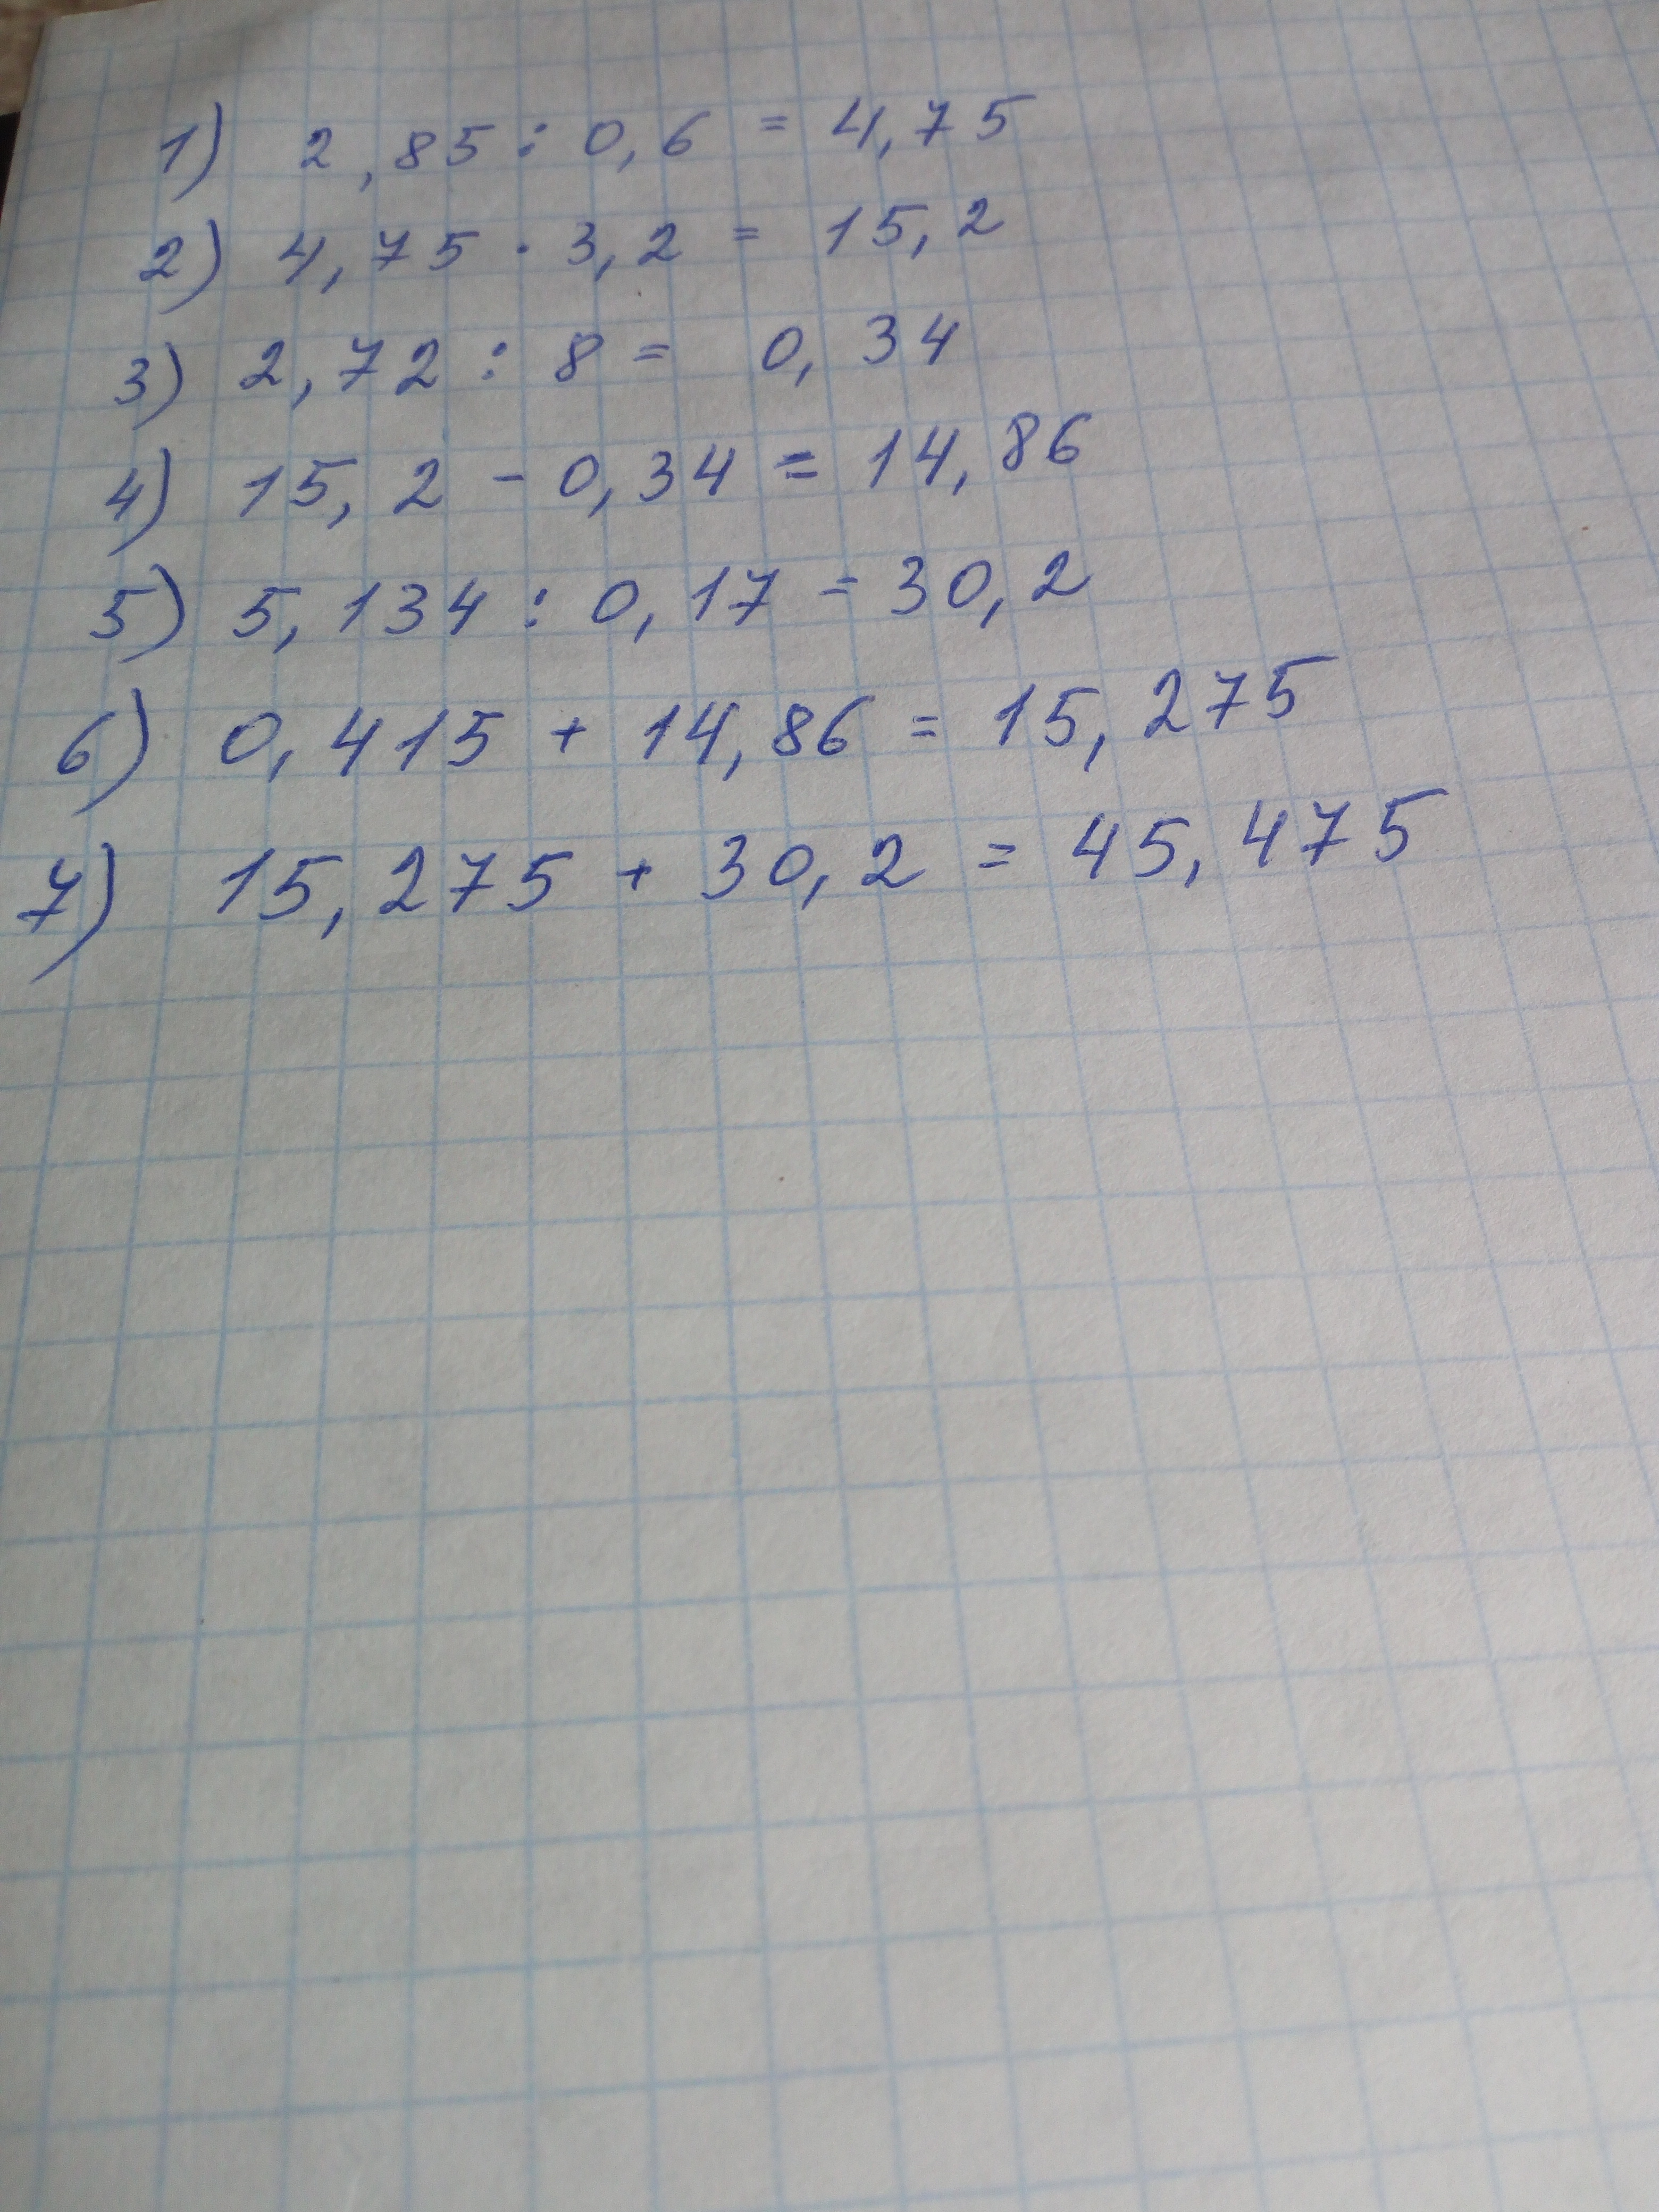 1) 2,85 : 0,6 = 4,75
2) 4,75 · 3,2 = 15,2
3) 2,72 : 8 = 0,34
4) 15,2 - 0,34 = 14,86
5) 5,134 : 0,17 = 30,2
6) 0,415 + 14,86 = 15,275
7) 15,275 + 30,2 = 45,475